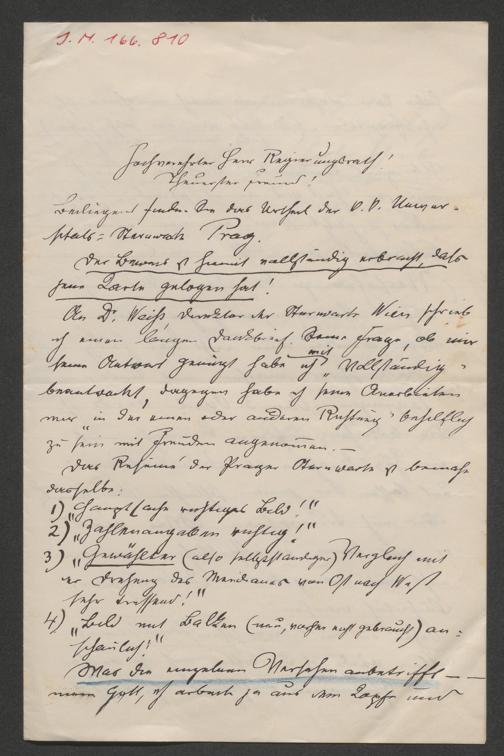 J. N. 166.810
Hochverehrter Herr Regierungsrath!
Theuerster Freund!
Beiliegend finden Sie das Urtheil der k. k. Univer-
sitäts-Sternwarte Prag.
Der Beweis ist hiemit vollständig erbracht, daß
jene gelogen hat!
An Dr. Weiß Direktor der Sternwarte Wien schrieb
ich einen langen Dankbrief. Seine Frage, ob mir
seine Antwort genügt habe ich mit "Vollständig"
beantwortet, dagegen habe ich sein Anerbieten
mir "in der einen oder anderen Richtung" behilflich
zu sein mit Freuden angenommen. —
Das Resumé der Prager Sternwarte ist beinahe
dasselbe:
1) "Hauptsache richtiges Bild!"
2) "Zahlenangaben richtig!"
3) "Gewählter (also selbstständiger) Vergleich mit
der Drehung des Meridianes von Ost nach West
sehr treffend!"
4) "Bild mit Balken (neu, vorher nicht gebraucht) an-
schaulich!"
Was die einzelnen Versehen anbetrifft —
mein Gott, ich arbeite ja aus dem Kopfe und